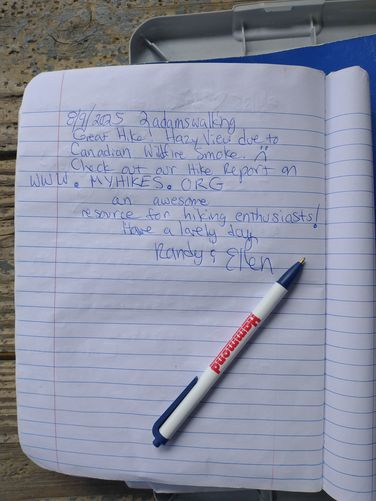 8/9/2025 2adamswalking
Great Hike! Hazy View due to
Canadian Wildfire Smoke. :(
Check out our Hike Report on
WWW. MYHIKES. ORG
an awesome
resource for hiking enthusiasts!
Have a lovely day,
Randy & Ellen
Hammond